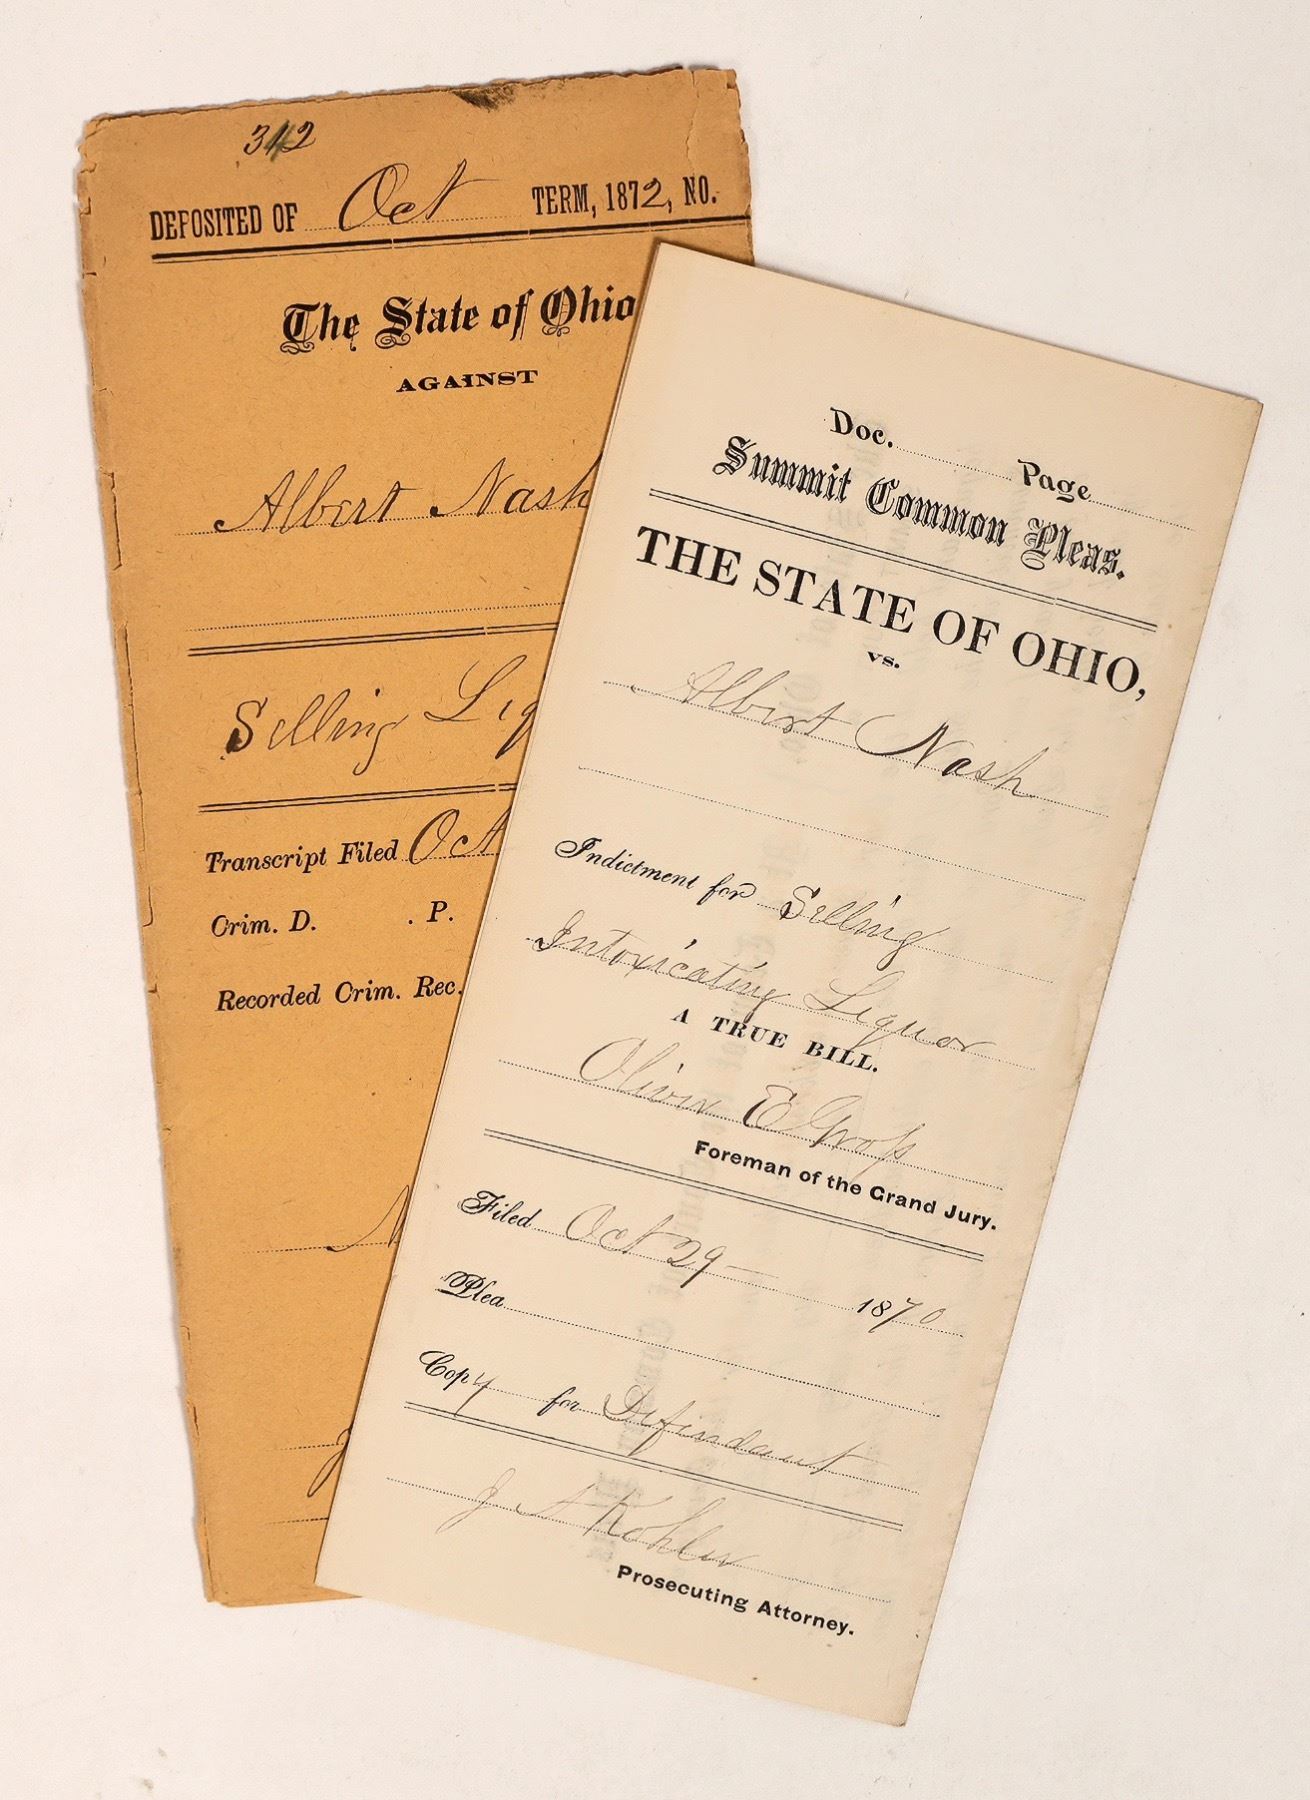 342
DEPOSITED OF Oct TERM, 1872, NO.
The State of Ohio
AGAINST
Albert Nash
Selling Liq
Transcript Filed Oct
Crim. D. . P.
Recorded Crim. Rec.
Doc. Page
Summit Common Pleas.
THE STATE OF OHIO,
vs.
Albert Nash
Indictment for Selling
Intoxicating Liquor
A TRUE BILL.
Oliver E Gross
Foreman of the Grand Jury.
Filed Oct 29 — 1870
Plea
Copy for Defendant
J A Kohler
Prosecuting Attorney.